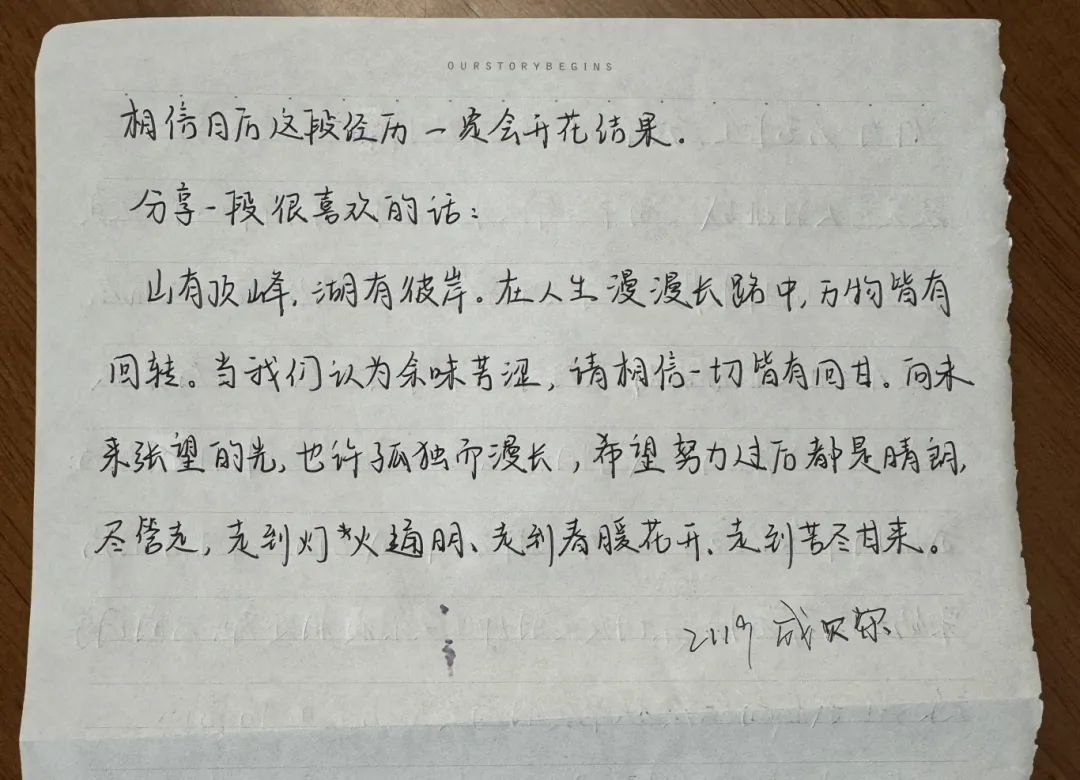 OURSTORYBEGINS
相信日后这段经历一定会开花结果.
分享一段很喜欢的话:
山有顶峰,湖有彼岸。在人生漫漫长路中,万物皆有
回转。当我们认为余味苦涩,请相信一切皆有回甘。向未
来张望的光,也许孤独而漫长,希望努力过后都是晴朗,
尽管走,走到灯火通明、走到春暖花开、走到苦尽甘来。
2119